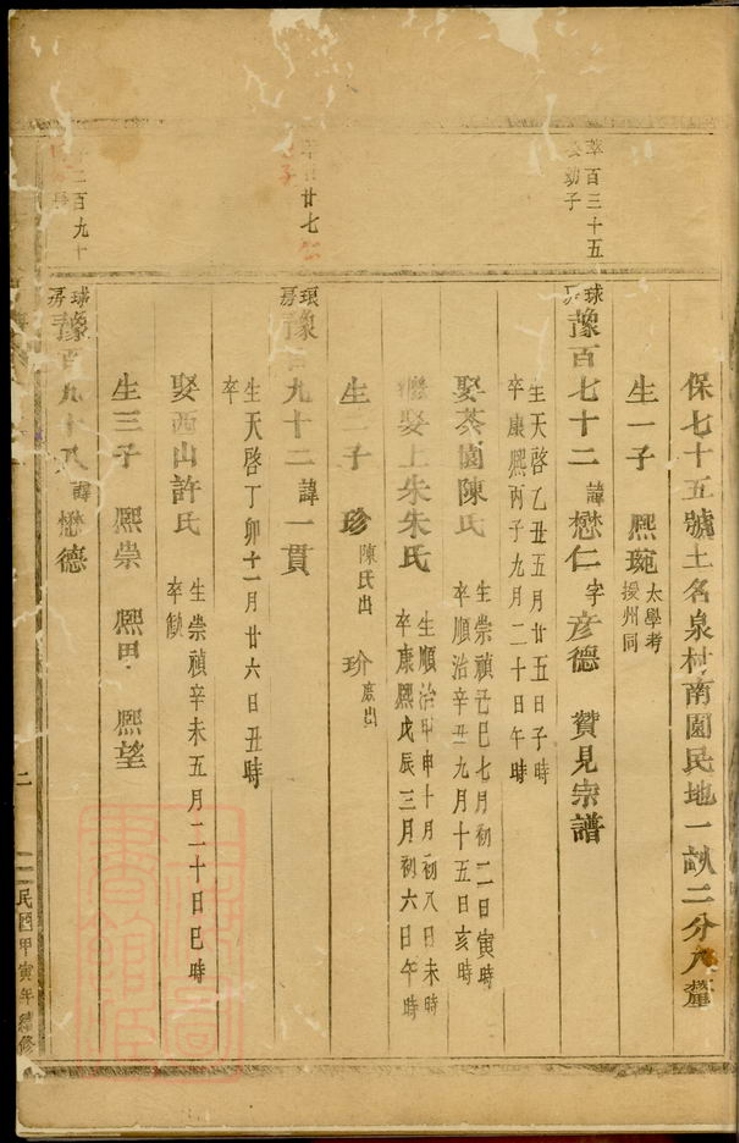 保七十五號土名泉村南園民地一畝二分八釐
生一子 熙琬 太學考
援州同
莘百三十五
公幼子
球
豫百七十二 諱懋仁 字彦德 贊見宗譜
生天啓乙丑五月廿五日子時
卒康熙丙子九月二十日午時
娶茶園陳氏 生崇禎己巳七月初二日寅時
卒順治辛丑九月十五日亥時
繼娶上朱朱氏 生順治甲申十月初八日未時
卒康熙戊辰三月初六日午時
生二子 珍 陳氏出 玠 庶出
廿七公
子
琅房
豫百九十二 諱一貫
生天啓丁卯十一月廿六日丑時
卒
娶西山許氏 生崇禎辛未五月二十日巳時
卒缺
生三子 熙崇 熙甲 熙望
二百九十
球房
豫百九十八 諱懋德
二 民國甲寅年續修